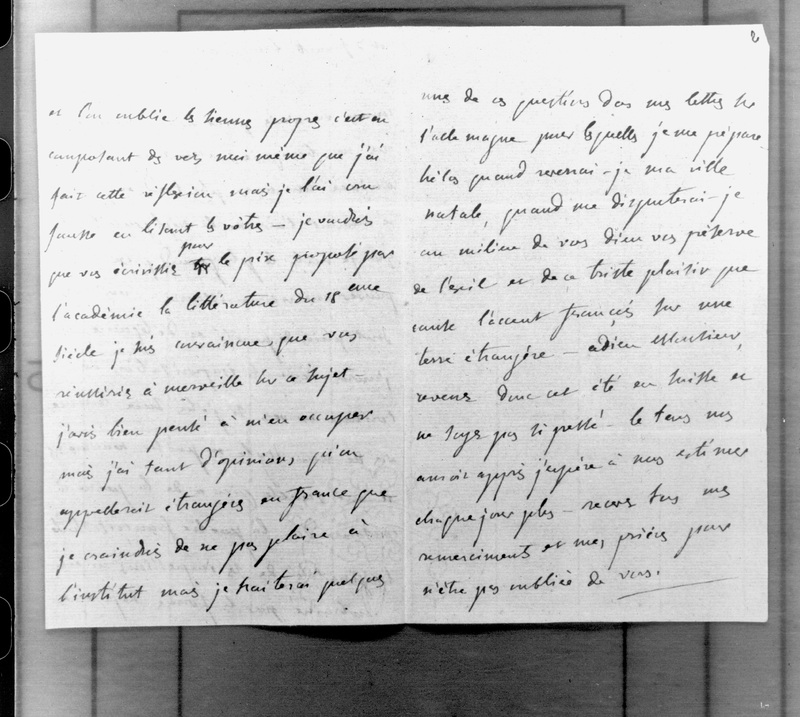 2
et l'on oublie les siennes propres c'est en
composant des vers moi même que j'ai
fait cette réflexion mais je l'ai crue
fausse en lisant les vôtres — je voudrais
que vous écrivissiez pour le prix proposé par
l'académie la littérature du 18 eme
siècle je suis convaincue que vous
réussiriés à merveille sur ce sujet —
j'avois bien pensé à m'en occuper
mais j'ai tant d'opinions qu'on
appelleroit étrangères en france que
je craindrois de ne pas plaire à
l'institut mais je traiterai quelques
unes de ces questions dans mes lettres sur
l'allemagne pour lesquelles je me prépare
hélas quand reverrai-je ma ville
natale, quand me disputerai-je
au milieu de vous dieu vous préserve
de l'exil et de ce triste plaisir que
cause l'accent français sur une
terre étrangère — adieu Monsieur,
revenez donc cet été en suisse et
ne soyez pas si pressé — le tems nous
auroit appris j'espère à nous estimer
chaque jour plus — recevez tous mes
remerciments et mes prières pour
n'être pas oubliée de vous.